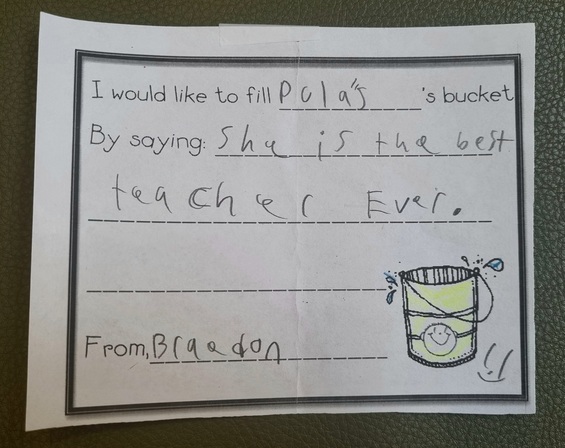 I would like to fill Pola's 's bucket
By saying: She is the best
teacher Ever.
From, Braedon